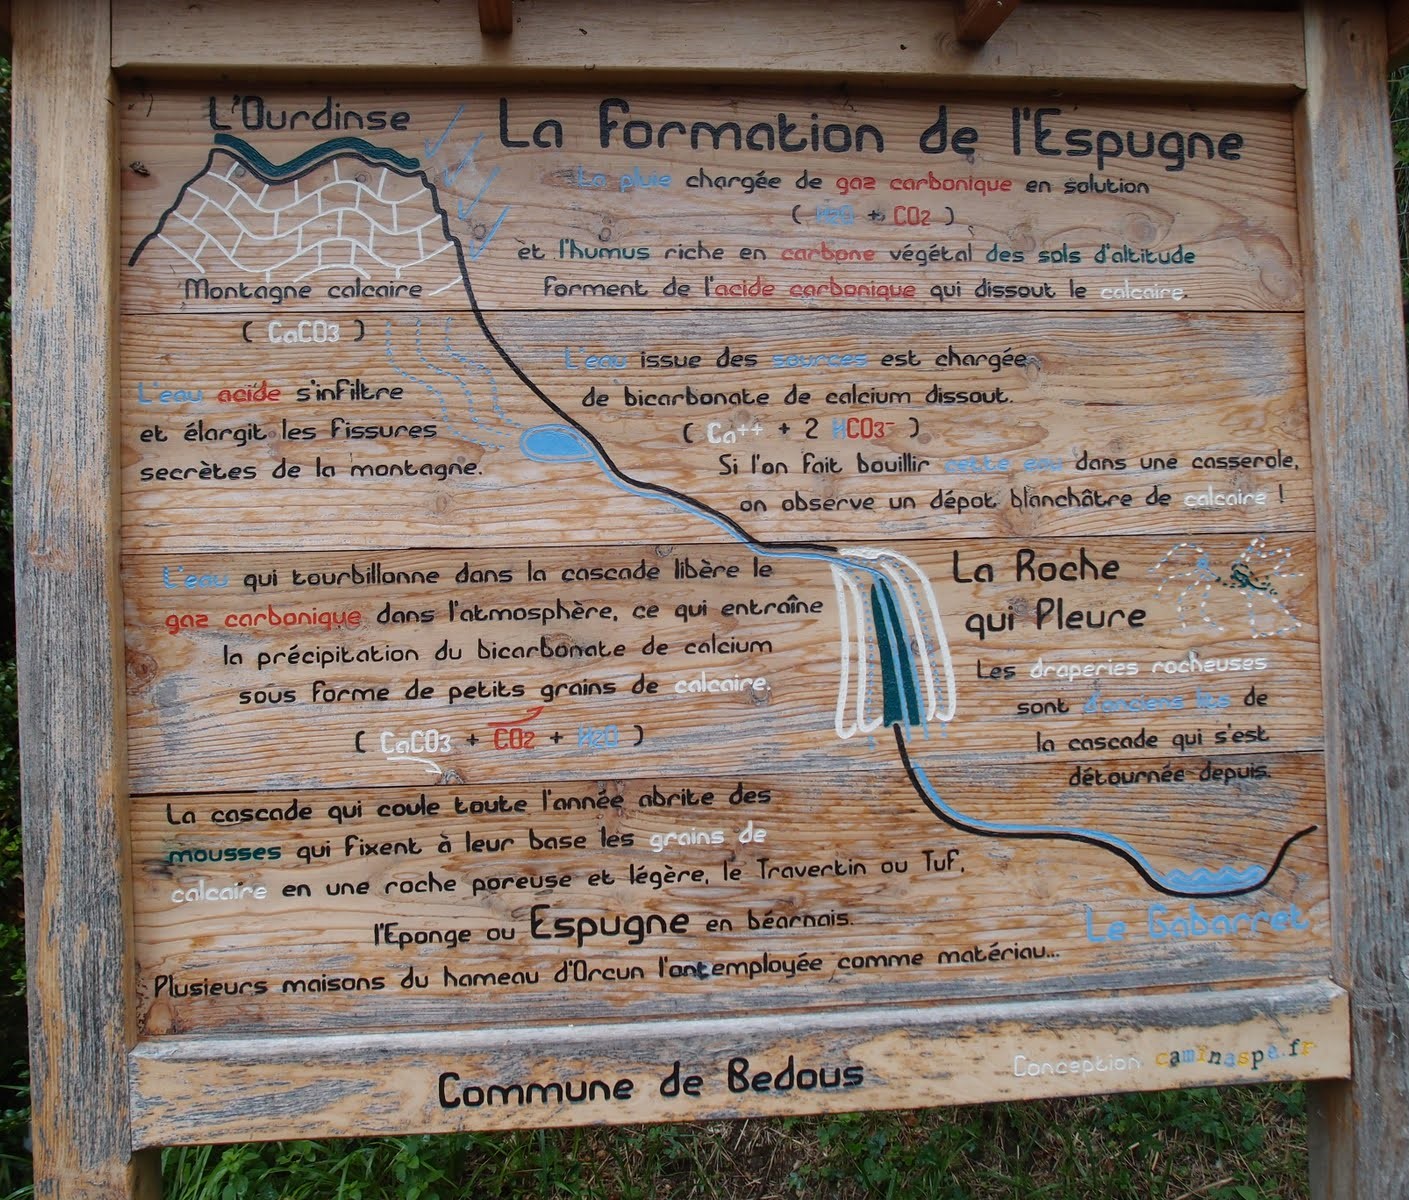 L'Ourdinse
La Formation de l'Espugne
La pluie chargée de gaz carbonique en solution
( H2O + CO2 )
èt l'humus riche en carbone végétal des sols d'altitude
forment de l'acide carbonique qui dissout le calcaire.
Montagne calcaire
( CaCO3 )
L'eau acide s'infiltre
et élargit les fissures
secrètes de la montagne.
L'eau issue des sources est chargée
de bicarbonate de calcium dissout.
( Ca++ + 2 HCO3- )
Si l'on fait bouillir cette eau dans une casserole,
on observe un dépot blanchâtre de calcaire !
L'eau qui tourbillonne dans la cascade libère le
gaz carbonique dans l'atmosphère, ce qui entraîne
la précipitation du bicarbonate de calcium
sous forme de petits grains de calcaire.
( CaCO3 + CO2 + H2O )
La Roche
qui Pleure
Les draperies rocheuses
sont d'anciens lits de
la cascade qui s'est
détournée depuis.
La cascade qui coule toute l'année abrite des
mousses qui fixent à leur base les grains de
calcaire en une roche poreuse et légère, le Travertin ou Tuf,
l'Eponge ou Espugne en béarnais.
Plusieurs maisons du hameau d'Orcun l'ont employée comme matériau...
Le Gabarret
Commune de Bedous
Conception caminaspe.fr